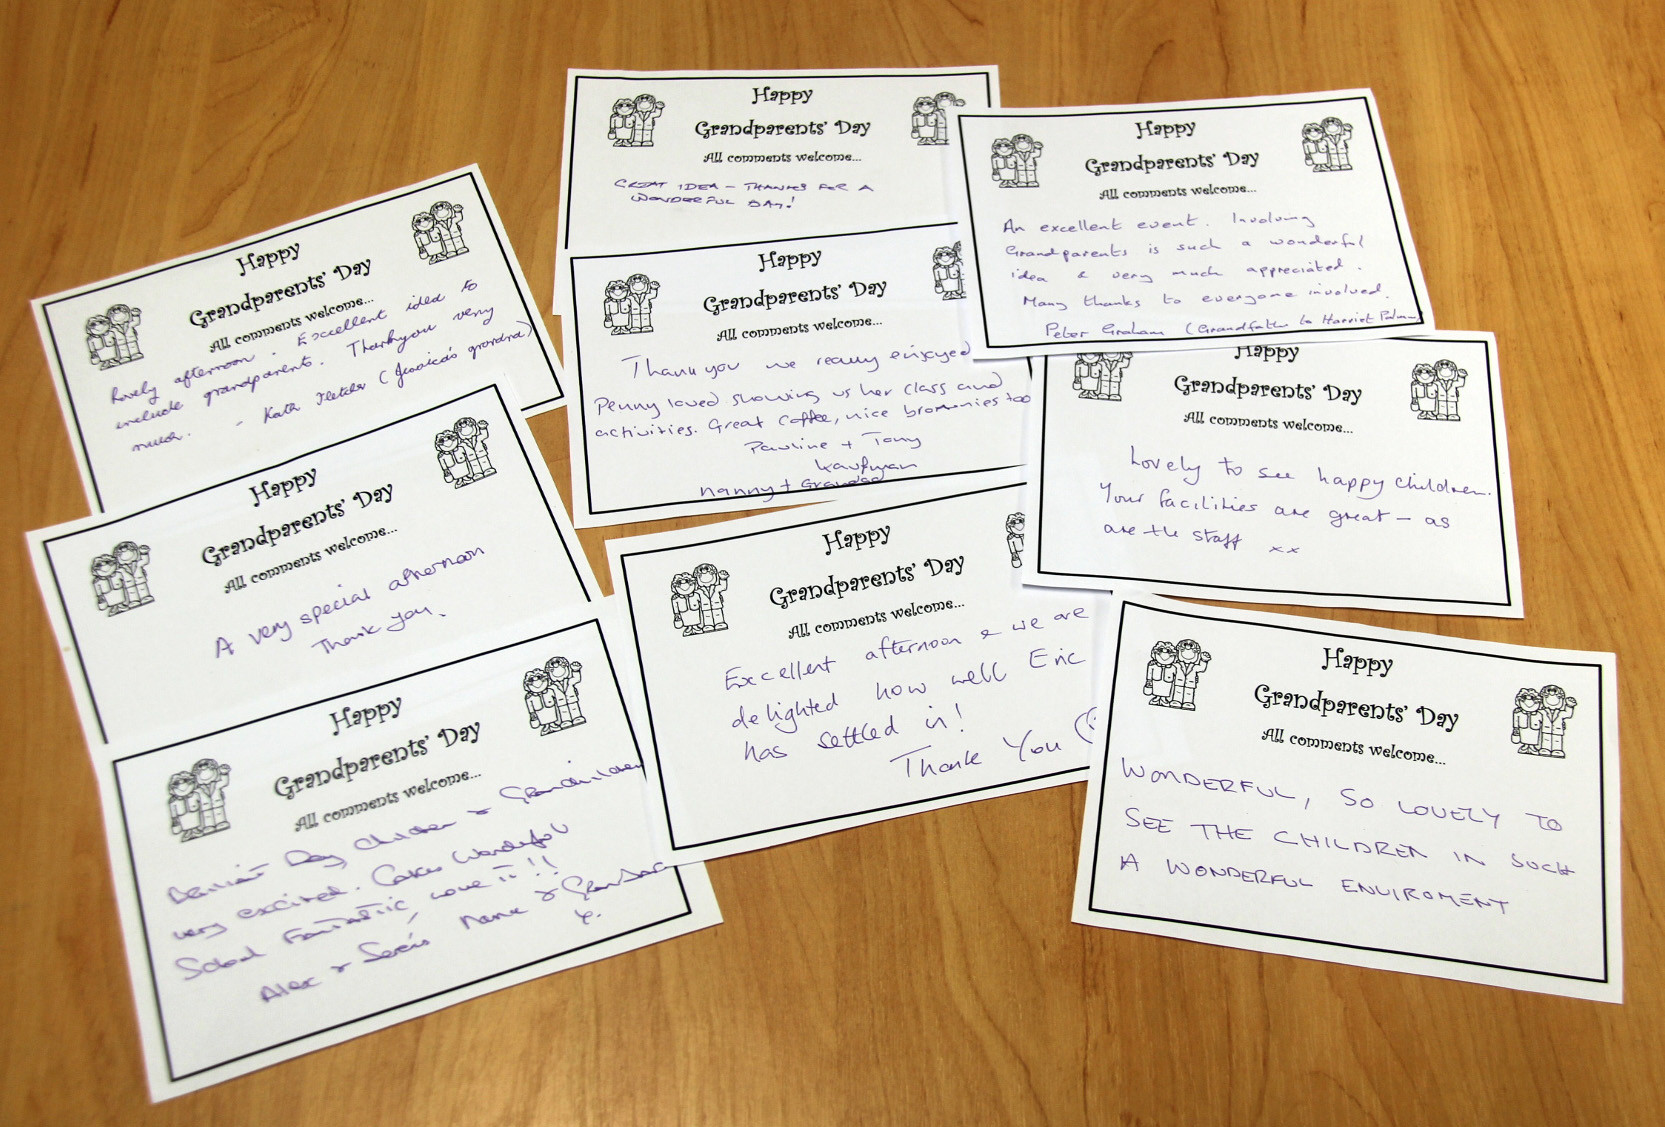 Happy
Grandparents' Day
All comments welcome...
Lovely afternoon. Excellent idea to
include grandparents. Thankyou very
much. - Kath Fletcher (Jessica's grandma)
Happy
Grandparents' Day
All comments welcome...
A very special afternoon
Thank you.
Happy
Grandparents' Day
All comments welcome...
Brilliant Day, Children & Grandchildren
very excited. Cakes Wonderful
School Fantastic, love it!!
Alex & Nana & Grandad
x.
Happy
Grandparents' Day
All comments welcome...
GREAT IDEA - THANKS FOR A
WONDERFUL DAY!
Happy
Grandparents' Day
All comments welcome...
Thank you we really enjoyed
Penny loved showing us her class and
activities. Great coffee, nice brownies too
Pauline + Tony
Kaufman
Nanny + Grandad
Happy
Grandparents' Day
All comments welcome...
Excellent afternoon & we are
delighted how well Eric
has settled in!
Thank You
Happy
Grandparents' Day
All comments welcome...
An excellent event. Involving
Grandparents is such a wonderful
idea & very much appreciated.
Many thanks to everyone involved.
Peter Graham (Grandfather to Harriet
Happy
Grandparents' Day
All comments welcome...
Lovely to see happy children.
Your facilities are great - as
are the staff xx
Happy
Grandparents' Day
All comments welcome...
WONDERFUL, SO LOVELY TO
SEE THE CHILDREN IN SUCH
A WONDERFUL ENVIROMENT